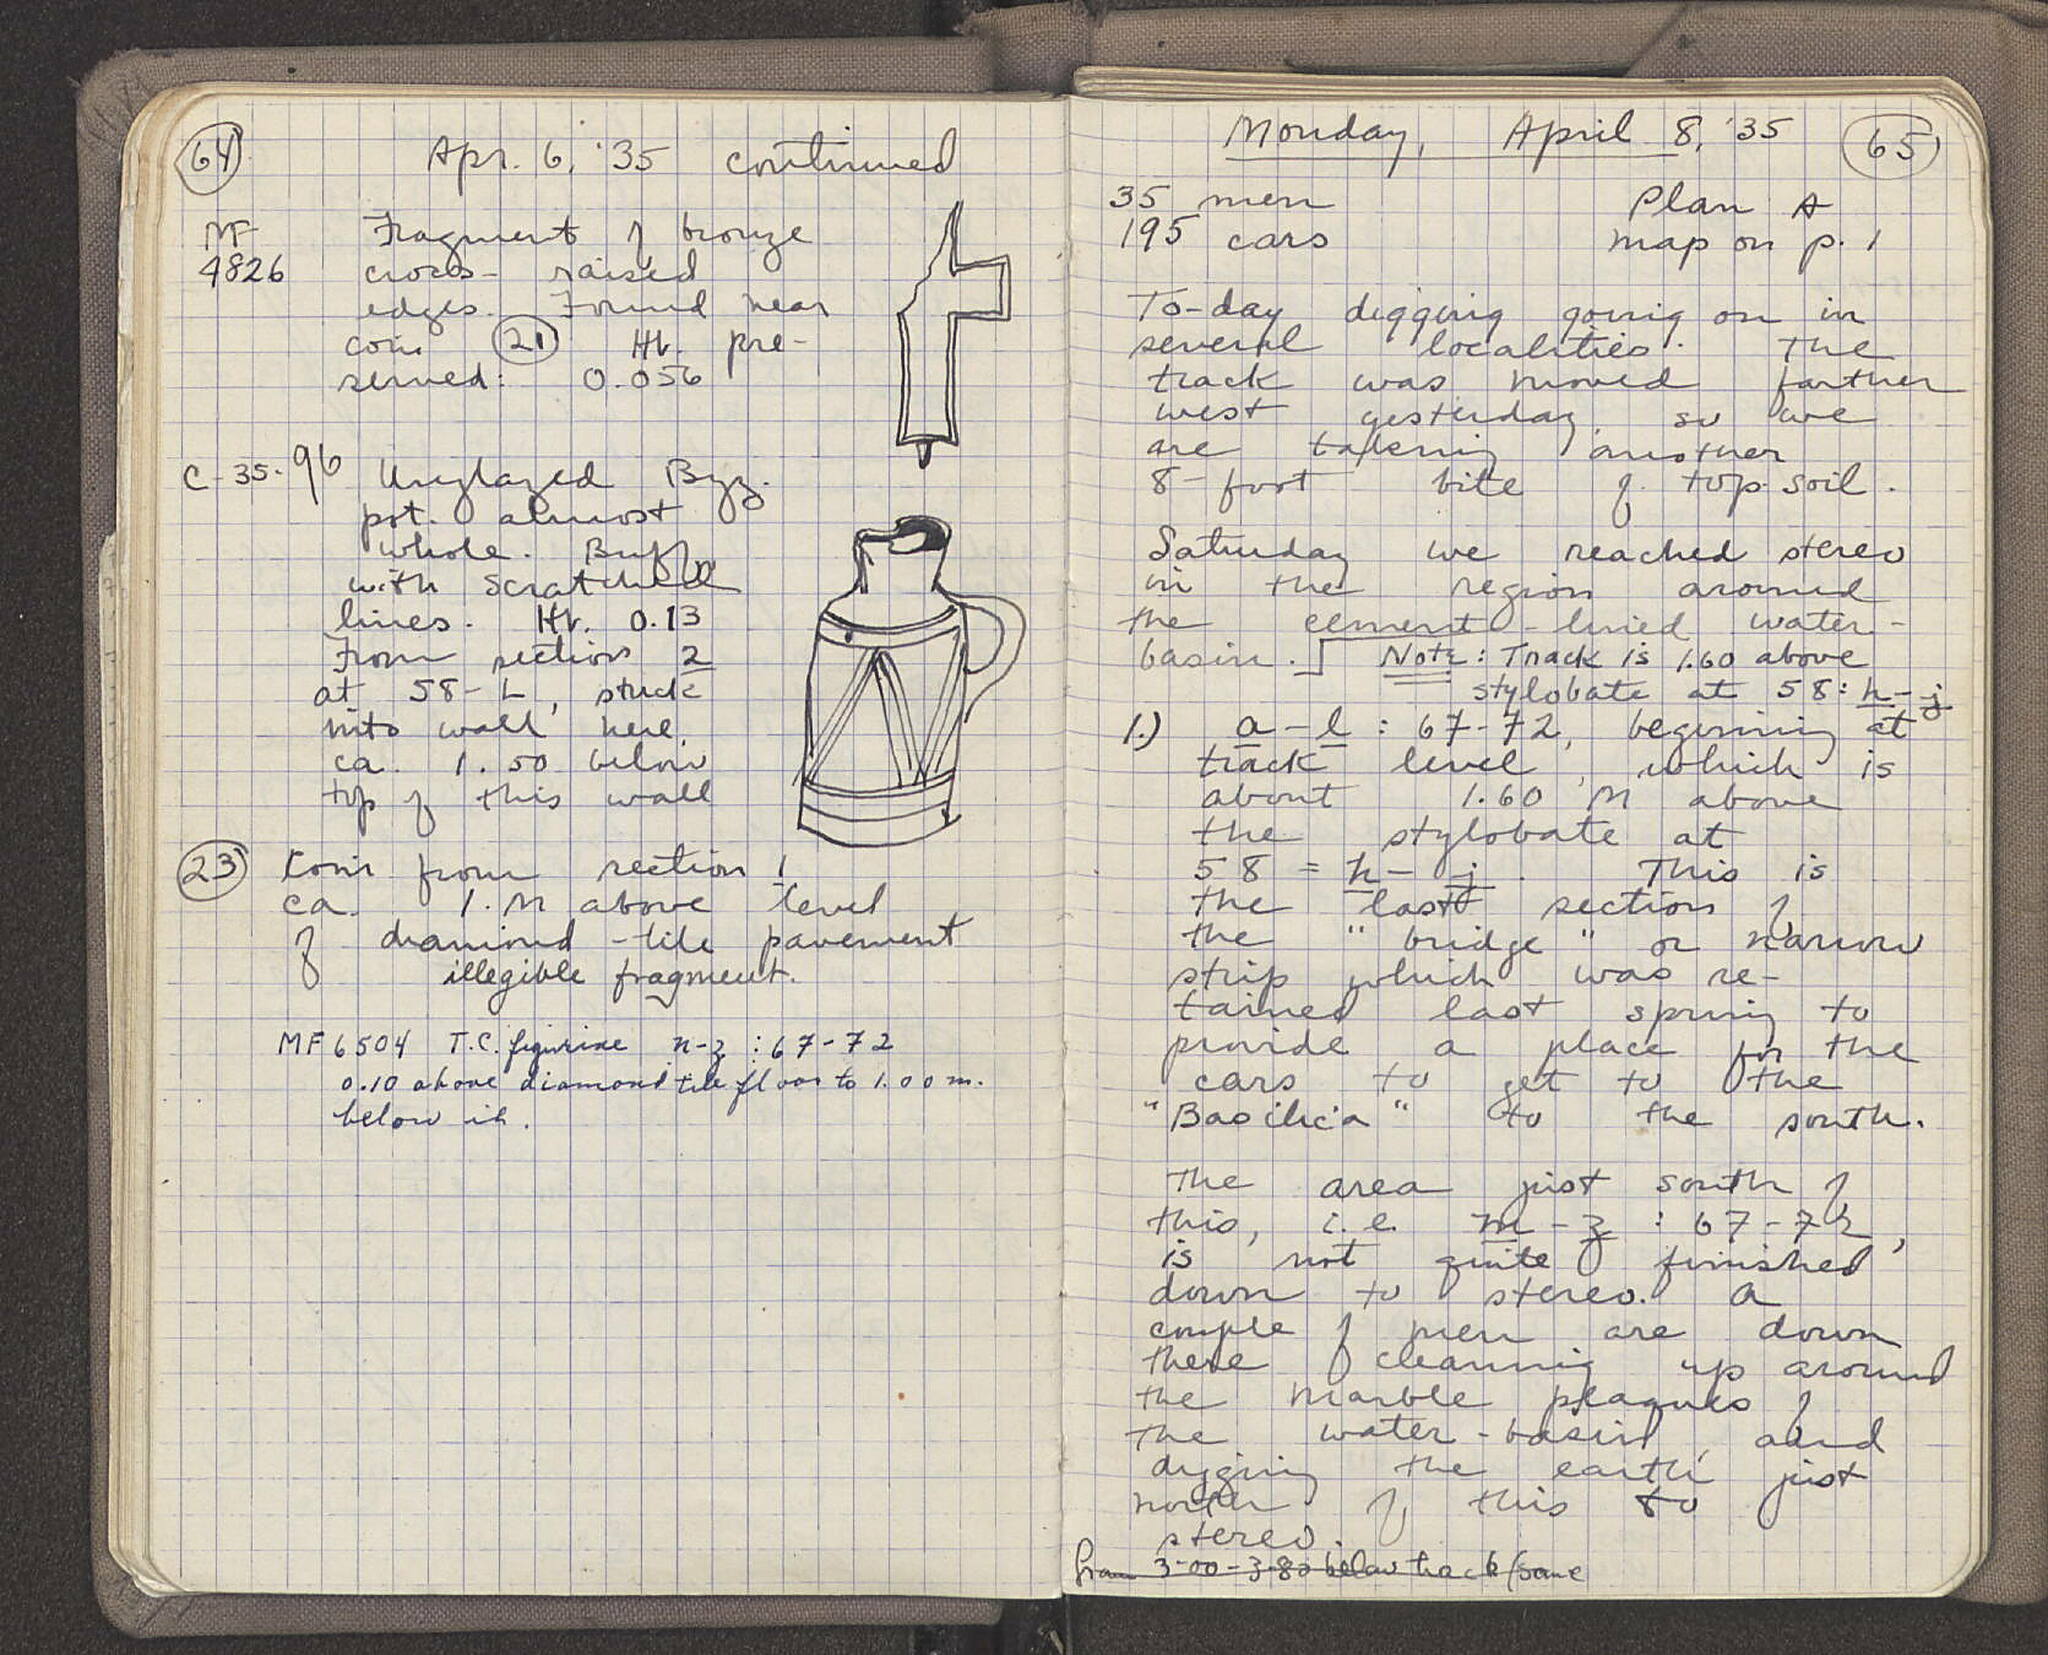 64
Apr. 6, '35 continued
MF
4826
Fragment of bronze
cross - raised
edges. Found near
coin 21 Ht. pre-
served: 0.056
C-35-96 Unglazed Byz.
pot. almost
whole. Buff
with scratched
lines. Ht. 0.13
From section 2
at 58-L, stuck
into wall here,
ca. 1.50 below
top of this wall
23 Coin from section 1
ca. 1. M above level
of diamond-tile pavement
illegible fragment.
MF 6504 T.C. figurine n-z : 67-72
0.10 above diamond tile floor to 1.00 m.
below it.
Monday, April 8, '35
65
35 men Plan A
195 cars map on p. 1
To-day digging going on in
several localities. The
track was moved farther
west yesterday, so we
are taking another
8-foot bite of top-soil.
Saturday we reached stereo
in the region around
the cement-lined water-
basin. Note: Track is 1.60 above
stylobate at 58: h-j
1.) a-l : 67-72, beginning at
track level, which is
about 1.60 M above
the stylobate at
58 = h-j. This is
the last section of
the "bridge" or narrow
strip which was re-
tained last spring to
provide a place for the
cars to get to the
"Basilica" to the south.
The area just south of
this, i.e. m-z : 67-72,
is not quite finished
down to stereo. A
couple of men are down
there cleaning up around
the marble plaques of
the water-basin, and
digging the earth just
north of this to
stereo.
from 3-00-3-80 below track (same